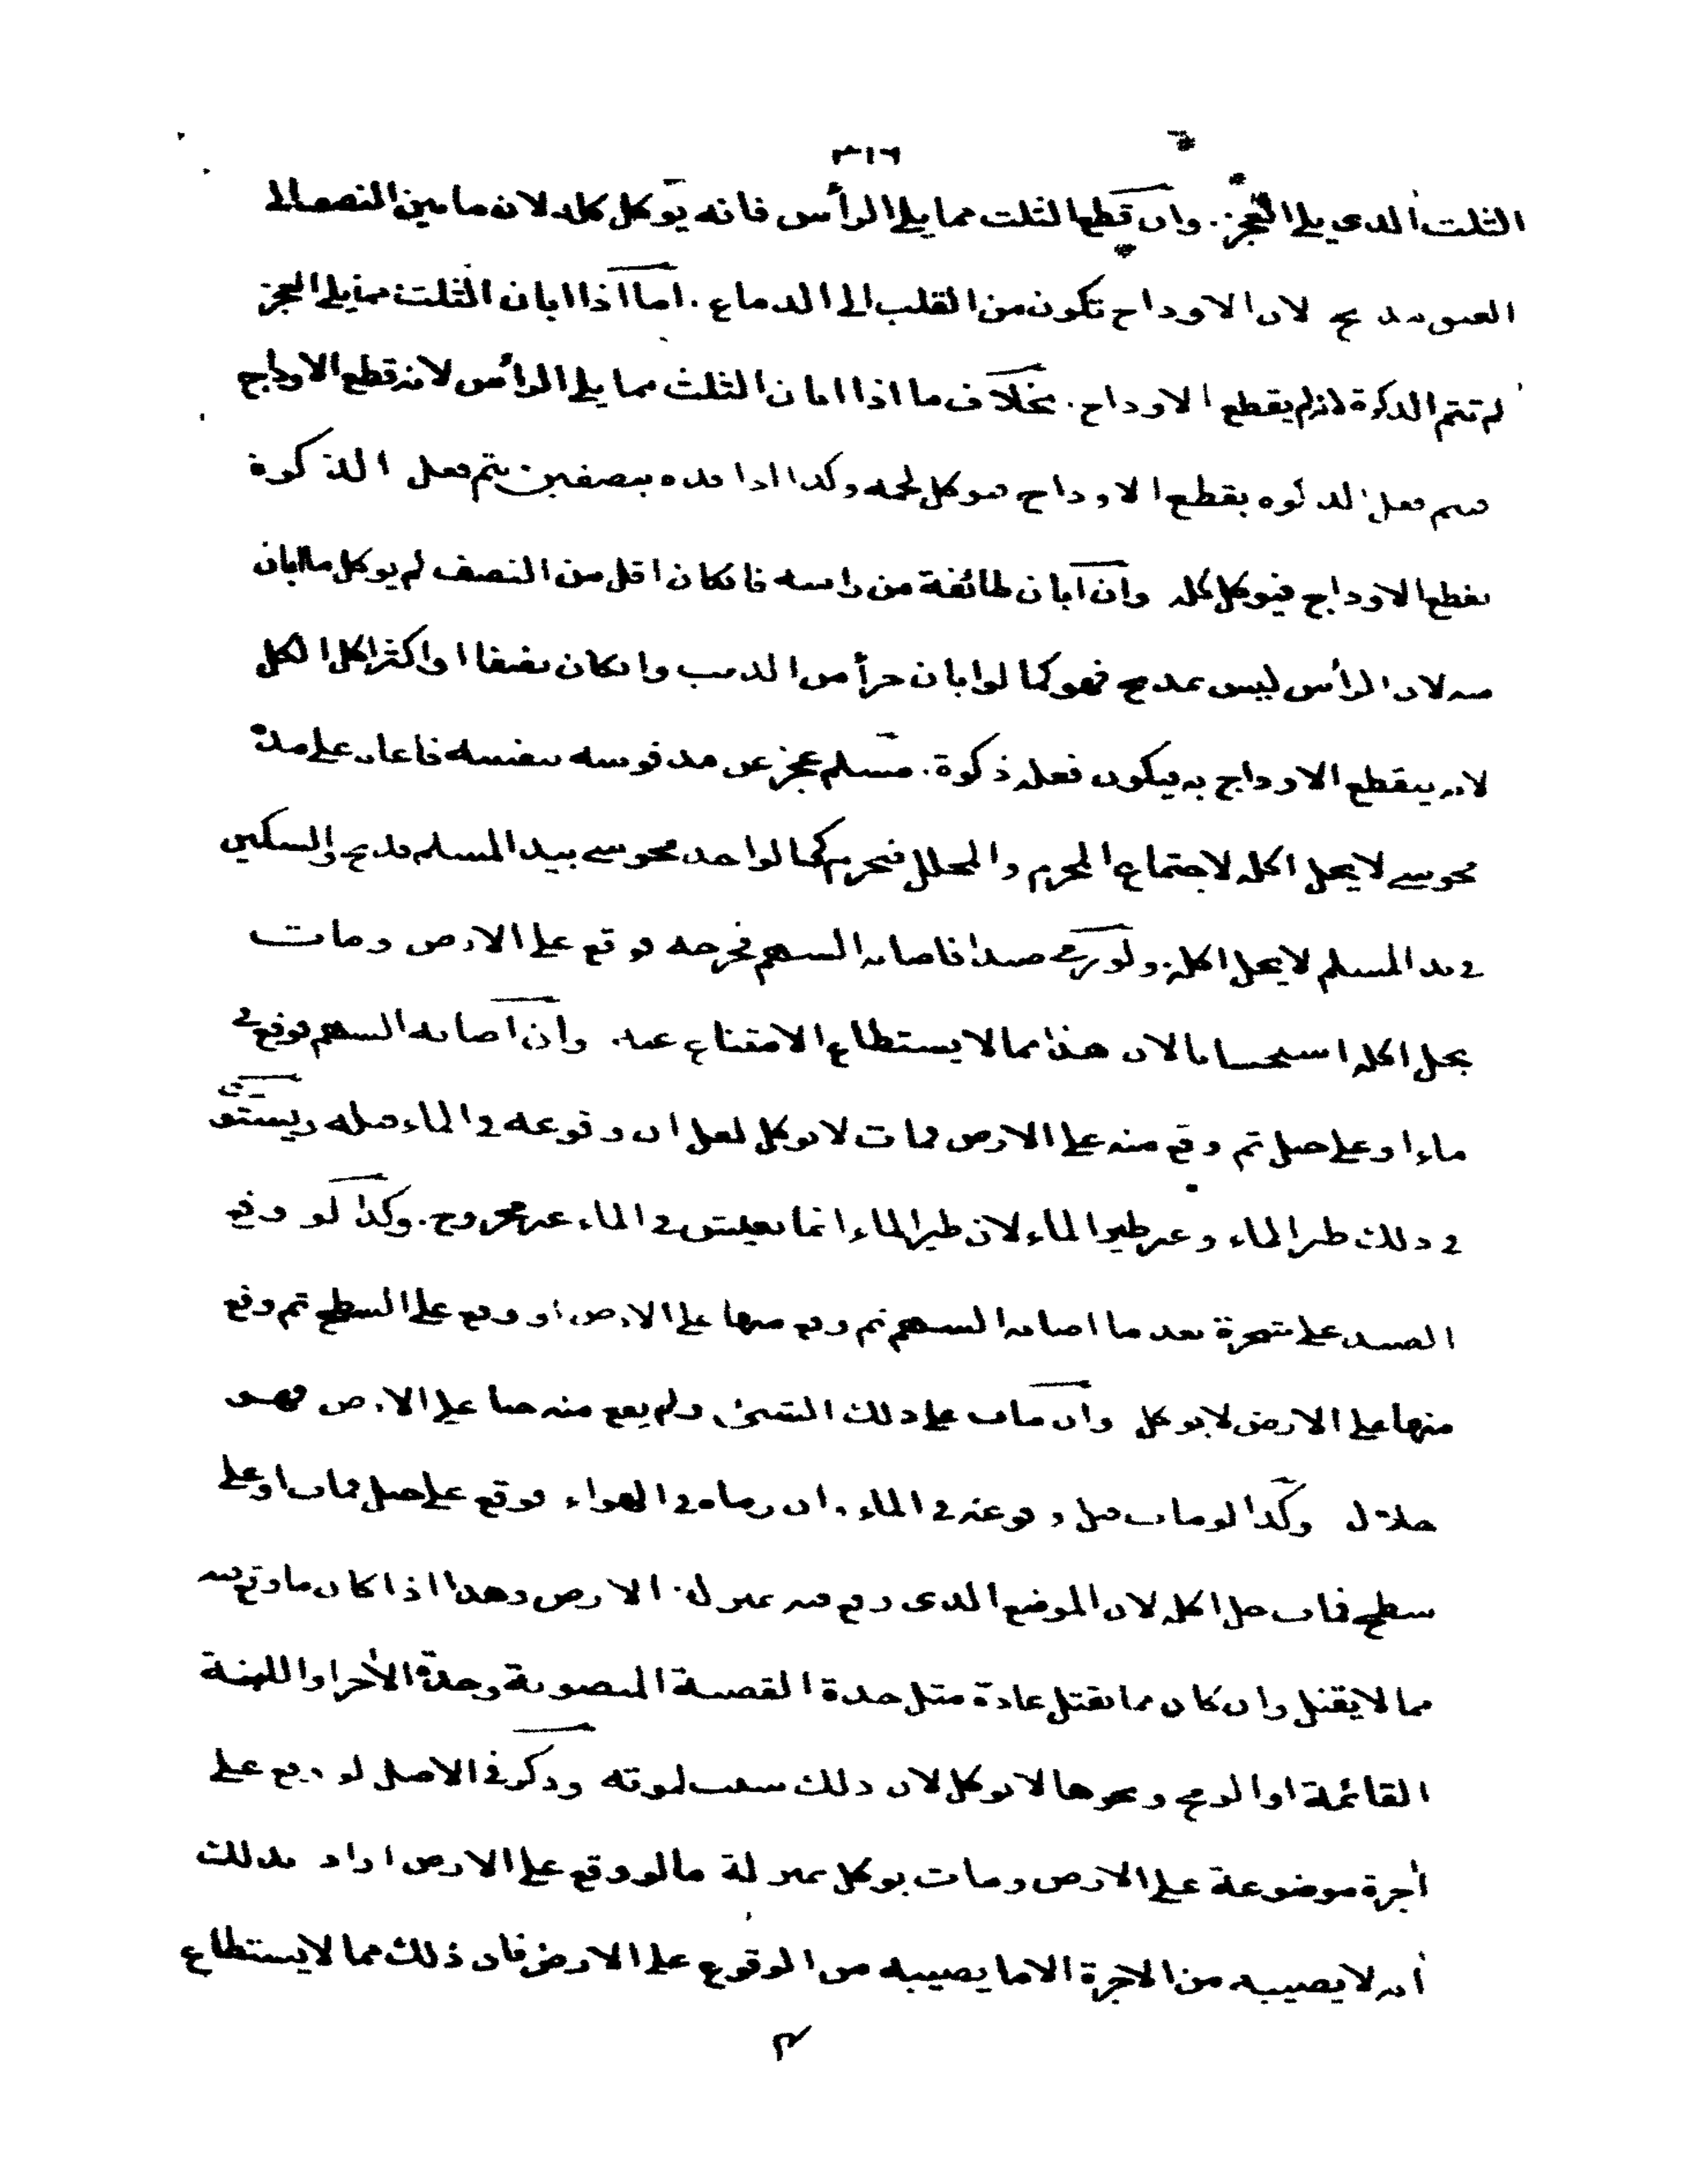 ٣١٦
الثلث الذي يلي العجز. وان قطع الثلث مما يلي الرأس فانه يوكل كله لان ما بين النصف الى
العنق مذبح لان الاوداج تكون من القلب الى الدماغ. اما اذا ابان الثلث مما يلي العجز
لم تتم الذكوة لانه لم يقطع الاوداج. بخلاف ما اذا ابان الثلث مما يلي الرأس لانه قطع الاوداج
فيتم فعل الذكوة بقطع الاوداج فيوكل لحمه وكذا اذا قده بنصفين يتم فعل الذكوة
بقطع الاوداج فيوكل كله وان ابان طائفة من راسه فان كان اقل من النصف لم يوكل ما ابان
منه لان الرأس ليس بمذبح فهو كما لو ابان جزأ من الذنب وان كان نصفا او اكثر اكل الكل
لانه يتقطع الاوداج به فيكون فعله ذكوة. مسلم عجز عن مد قوسه بنفسه فاعانه على مده
مجوسي لا يحل اكله لاجتماع المحرم والمحلل فيحرم كما لو اخذ مجوسي بيد المسلم فذبح والسكين
في يد المسلم لا يحل اكله. ولو رمى صيدا فاصابه السهم فجرحه فوقع على الارض ومات
يحل اكله استحسانا لان هذا مما لا يستطاع الامتناع عنه. وان اصابه السهم فوقع في
ماء او على جبل ثم وقع منه على الارض فمات لا يوكل لعل ان وقوعه في الماء قتله ويستوى
في ذلك طير الماء وغير طير الماء لان طير الماء انما يعيش في الماء غير مجروح. وكذا لو وقع
الصيد على شجرة بعد ما اصابه السهم ثم وقع منها على الارض او وقع على السطح ثم وقع
منها على الارض لا يوكل وان مات على ذلك الشئ ولم يقع منه حيا على الارض فهو
حلال وكذا لو مات قبل وقوعه في الماء. وان رماه في الهواء فوقع على جبل فمات او على
سطح فمات حل اكله لان الموضع الذي وقع فيه بمنزلة الارض وهذا اذا كان ما وقع فيه
مما لا يقتل وان كان مما يقتل عادة مثل حدة القصبة المنصوبة وحدة الآجر او اللبنة
القائمة او الرمح ونحوها لا يوكل لان ذلك سبب لموته وذكر في الاصل لو وقع على
أجرة موضوعة على الارض ومات يوكل بمنزلة ما لو وقع على الارض اراد بذلك
أنه لا يصيبه من الاجرة الا ما يصيبه من الوقوع على الارض فان ذلك مما لا يستطاع